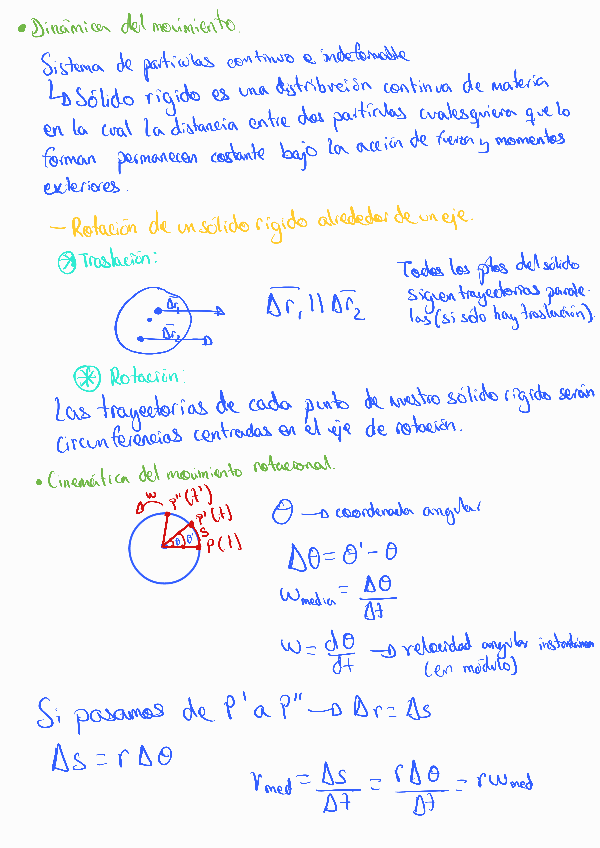 • Dinámica del movimiento.
Sistema de partículas continuo e indeformable
↳ Sólido rígido es una distribución continua de materia
en la cual la distancia entre dos partículas cualesquiera que lo
forman permanecen costante bajo la acción de fuerzas y momentos
exteriores.
— Rotación de un sólido rígido alrededor de un eje.
* Traslación:
Δr₁
Δr₂
Δr₁ || Δr₂
Todos los ptos del sólido
siguen trayectorias parale-
las (si sólo hay traslación).
* Rotación:
Las trayectorias de cada punto de nuestro sólido rígido serán
circunferencias centradas en el eje de rotación.
• Cinemática del movimiento rotacional.
w
P''(t')
P'(t)
s
θ θ'
P(t)
θ → coordenada angular
Δθ = θ' - θ
w media = Δθ / Δt
w = dθ / dt → velocidad angular instantánea
(en módulo)
Si pasamos de P' a P'' → Δr = Δs
Δs = r Δθ
v med = Δs / Δt = r Δθ / Δt = r w med